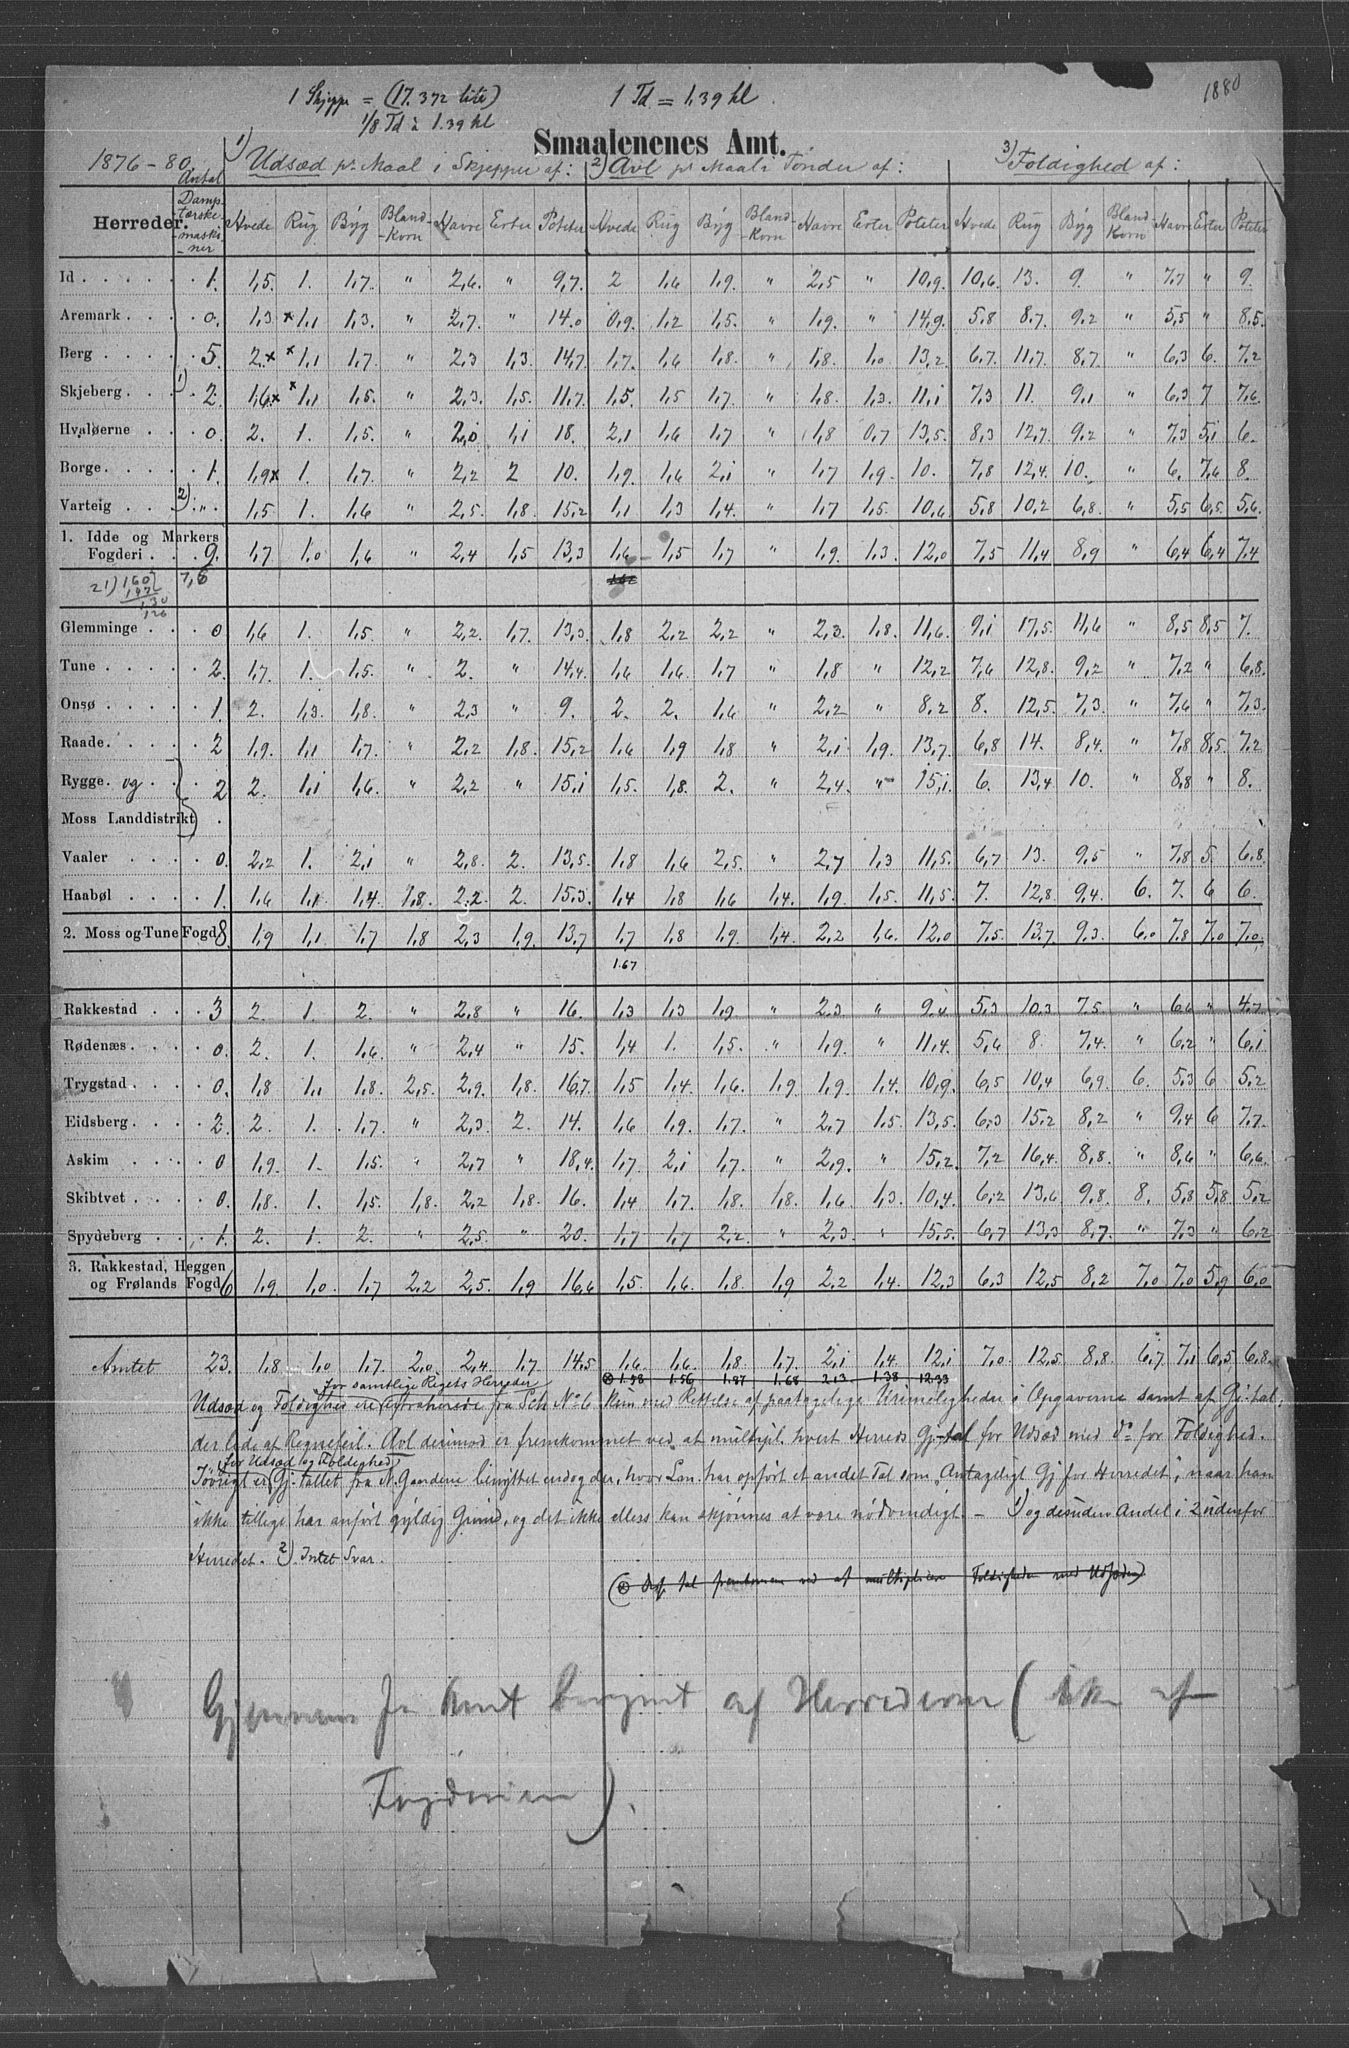 1880
1 Skjeppe = (17.372 liter) 1 Td = 1,39 hl.
1/8 Td à 1.39 hl
Smaalenenes Amt.
1876-80. 1) Udsæd pr Maal i Skjepper af: 2) Avl pr Maal i Tønder af: 3) Foldighed af:
Herreder. Antal Damptærskemaskiner Hvede Rug Byg Bland-Korn Havre Erter Poteter Hvede Rug Byg Bland-Korn Havre Erter Poteter Hvede Rug Byg Bland Korn Havre Erter Poteter
Id . . . . . . 1. 1,5. 1. 1,7. " 2,6. " 9,7. 2 1,6 1,9. " 2,5 " 10,9. 10,6. 13. 9. " 7,7 " 9.
Aremark . . . . 0. 1,3 × 1,1 1,3. " 2,7. " 14.0 0,9. 1,2 1,5. " 1,9. " 14,9. 5,8 8,7. 9,2 " 5,5 " 8,5.
Berg . . . . 5. 2.× × 1,1 1,7. " 2,3 1,3. 14,7 1,7. 1,6 1,8. " 1,8. 1,0 13,2 6,7. 11,7. 8,7. " 6,3 6. 7,2
Skjeberg . . . 1) 2. 1,6× × 1,1 1,5. " 2,3. 1,5. 11,7. 1,5. 1,5 1,7. " 1,8. 1,3. 11,1 7,3 11. 9,1 " 6,3 7 7,6.
Hvaløerne . . . 0. 2. 1. 1,5. " 2,0 1,1 18. 2,1 1,6 1,7 " 1,8 0,7 13,5. 8,3 12,7. 9,2 " 7,3 5,1 6.
Borge . . . . 1. 1,9× 1. 1,7. " 2,2 2 10. 1,9. 1,6 2,1 " 1,7 1,9. 10. 7,8 12,4. 10. " 6. 7,6 8.
Varteig . . 2) " . 1,5 1. 1,6 " 2,5. 1,8. 15,2 1,1 1,3 1,4. " 1,7 1,5. 10,6. 5,8 10,2 6,8. " 5,5 6,5. 5,6.
1. Idde og Markers
Fogderi . . . 9. 1,7 1,0 1,6 " 2,4 1,5 13,3 1,6 1,5 1,7 " 1,9. 1,3. 12,0 7,5 11,4 8,9 " 6,4 6,4 7,4
Glemminge . . . 0 1,6 1. 1,5. " 2,2. 1,7. 13,3. 1,8 2,2 2,2 " 2,3. 1,8. 11,6. 9,1 17,5. 11,6 " 8,5 8,5 7.
Tune . . . . . 2. 1,7. 1. 1,5. " 2. " 14,4. 1,6 1,6. 1,7 " 1,8 " 12,2 7,6 12,8. 9,2 " 7,2 " 6,8.
Onsø . . . . . 1. 2. 1,3. 1,8. " 2,3 " 9. 2. 2. 1,6 " 2,2 " 8,2 8. 12,5. 7,3. " 7,6 " 7,3.
Raade. . . . . 2 1,9. 1,1 1,7. " 2,2 1,8. 15,2 1,6 1,9 1,8 " 2,1 1,9. 13,7. 6,8 14. 8,4. " 7,8 8,5. 7,2
Rygge. og . . 2 2. 1,1 1,6. " 2,2 " 15,1 1,5. 1,8. 2. " 2,4. " 15,1. 6. 13,4 10. " 8,8 " 8.
Moss Landdistrikt
Vaaler . . . . 0. 2,2 1. 2,1 " 2,8. 2. 13,5. 1,8 1,6 2,5. " 2,7 1,3 11,5. 6,7 13. 9,5 " 7,8 5. 6,8.
Haabøl . . . . 1. 1,6 1,1 1,4 1,8. 2,2 2 15,3. 1,4 1,8 1,6 1,4. 1,9. 1,5. 11,5. 7. 12,8 9,4. 6. 7. 6 6.
2. Moss og Tune Fogd. 8. 1,9 1,1 1,7 1,8 2,3 1,9. 13,7 1,7 1,8 1,9. 1,4. 2,2 1,6. 12,0 7,5. 13,7. 9,3. 6,0 7,8 7,0 7,0.
1.67
Rakkestad . . . 3 2. 1. 2. " 2,8 " 16. 1,3 1,3 1,9 " 2,3 " 9,4 5,3 10,3 7,5 " 6,6 " 4,7.
Rødenæs . . . . 0. 2. 1. 1,6. " 2,4 " 15. 1,4 1. 1,5. " 1,9. " 11,4. 5,6 8 7,4. " 6,2 " 6,1
Trygstad . . . . 0. 1,8 1,1 1,8. 2,5. 2,9. 1,8. 16,7. 1,5 1,4. 1,6. 1,9 1,9. 1,4. 10,9. 6,5 10,4 6,9. 6. 5,3 6 5,2
Eidsberg . . . . 2. 2. 1. 1,7. " 2,3. 2. 14. 1,6 1,9. 1,7. " 2,7 1,5 13,5. 6,3 15,2 8,2 " 9,4 6 7,7.
Askim . . . . 0 1,9. 1. 1,5. " 2,7 " 18,4. 1,7. 2,1 1,7. " 2,9. " 15,2. 7,2 16,4. 8,8. " 8,6 " 6,6.
Skibtvet . . . 0. 1,8. 1. 1,5 1,8. 2,2 1,8. 16. 1,4 1,7. 1,8. 1,8. 1,6 1,3. 10,4. 6,2 13,6 9,8. 8. 5,8 5,8 5,2
Spydeberg . . . 1. 2. 1. 2. " 2,5. " 20. 1,7 1,7 2,2. " 2,3. " 15,5. 6,7 13,3 8,7. " 7,3 " 6,2
3. Rakkestad, Heggen
og Frølands Fogd. 6 1,9. 1,0. 1,7 2,2 2,5. 1,9 16,6 1,5. 1,6. 1,8. 1,9 2,2 1,4. 12,3 6,3 12,5 8,2 7,0 7,0 5,9 6,0
Amtet 23. 1,8. 1,0 1,7. 2,0 2,4. 1,7 14,5 1,6. 1,6. 1,8 1,7. 2,1 1,4. 12,1 7,0. 12,5 8,8 6,7 7,1 6,5 6,8.
1.58 1.56 1.87 1.68 2.13 1.38 12.33
for samtlige Rigets Herreder
Udsæd og Foldighed ere extraherede fra Sch No 6 kun med Rettelse af paatagelige Urimeligheder i Opgaverne samt af Gj.tal,
der lide af Regnefeil. Avl derimod er fremkommet ved at multipl. hvert Herreds Gj-tal for Udsæd med do for Foldighed.
for Udsæd og Foldighed
Iøvrigt er Gj.tallet fra N. Gaardene benyttet endog der, hvor Len. har opført et andet Tal som "Antageligt Gj. for Herredet", naar han
ikke tillige har anført gyldig Grund, og det ikke ellers kan skjønnes at være nødvendigt. - 1) og desuden Andel i 2 udenfor
Herredet. 2) Intet Svar.
Disse tal fremkommer ved at multiplicere Foldigheden med Udsæden)
Gjennem for Amt beregnet af Herrederne (ikke af
Fogderierne).